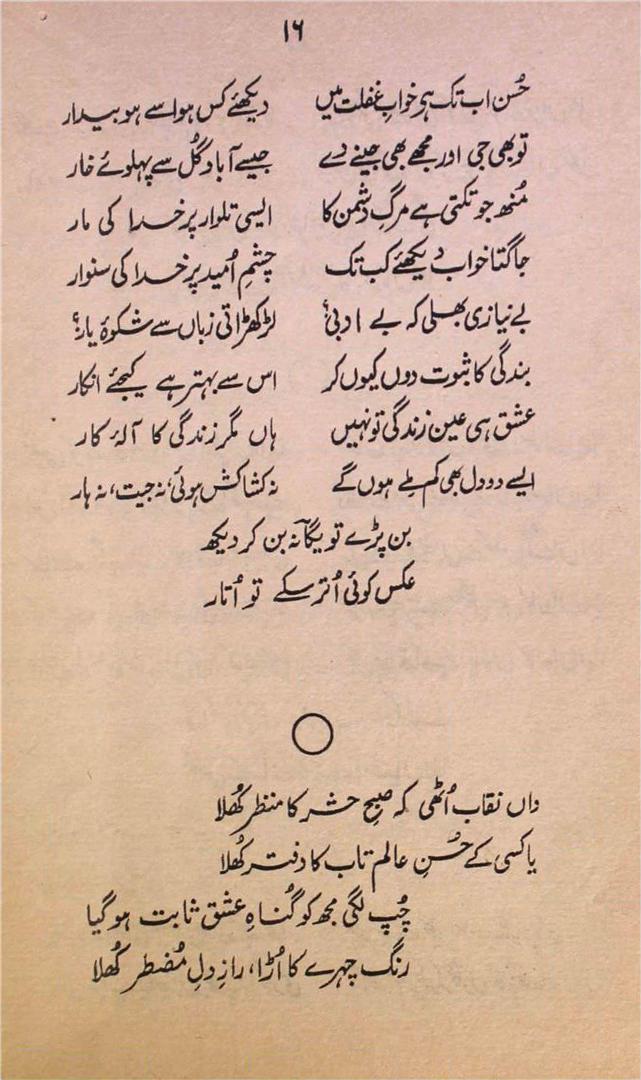 ۱۶
حُسن اب تک ہی خوابِ غفلت میں دیکھئے کس ہوا سے ہو بیدار
تو بھی جی اور مجھے بھی جینے دے جیسے آباد گُل سے پہلوئے خار
مُنھ جو تکتی ہے مرگِ دشمن کا ایسی تلوار پر خدا کی مار
جاگتا خواب دیکھئے کب تک چشمِ اُمید پر خدا کی سنوار
بے نیازی بھلی کہ بے ادبی؟ لڑکھڑاتی زباں سے شکوۂ یار؟
بندگی کا ثبوت دوں کیوں کر اس سے بہتر ہے کیجئے انکار
عشق ہی عین زندگی تو نہیں ہاں مگر زندگی کا آلۂ کار
ایسے دو دل بھی کم ملے ہوں گے نہ کشاکش ہوئی، نہ جیت، نہ ہار
بن پڑے تو یگانہ بن کر دیکھ
عکس کوئی اُتر سکے تو اُتار
واں نقاب اُٹھی کہ صبحِ حشر کا منظر کُھلا
یا کسی کے حُسنِ عالم تاب کا دفتر کُھلا
چُپ لگی مجھ کو گُناہِ عشق ثابت ہو گیا
رنگ چہرے کا اُڑا، رازِ دلِ مُضطر کُھلا